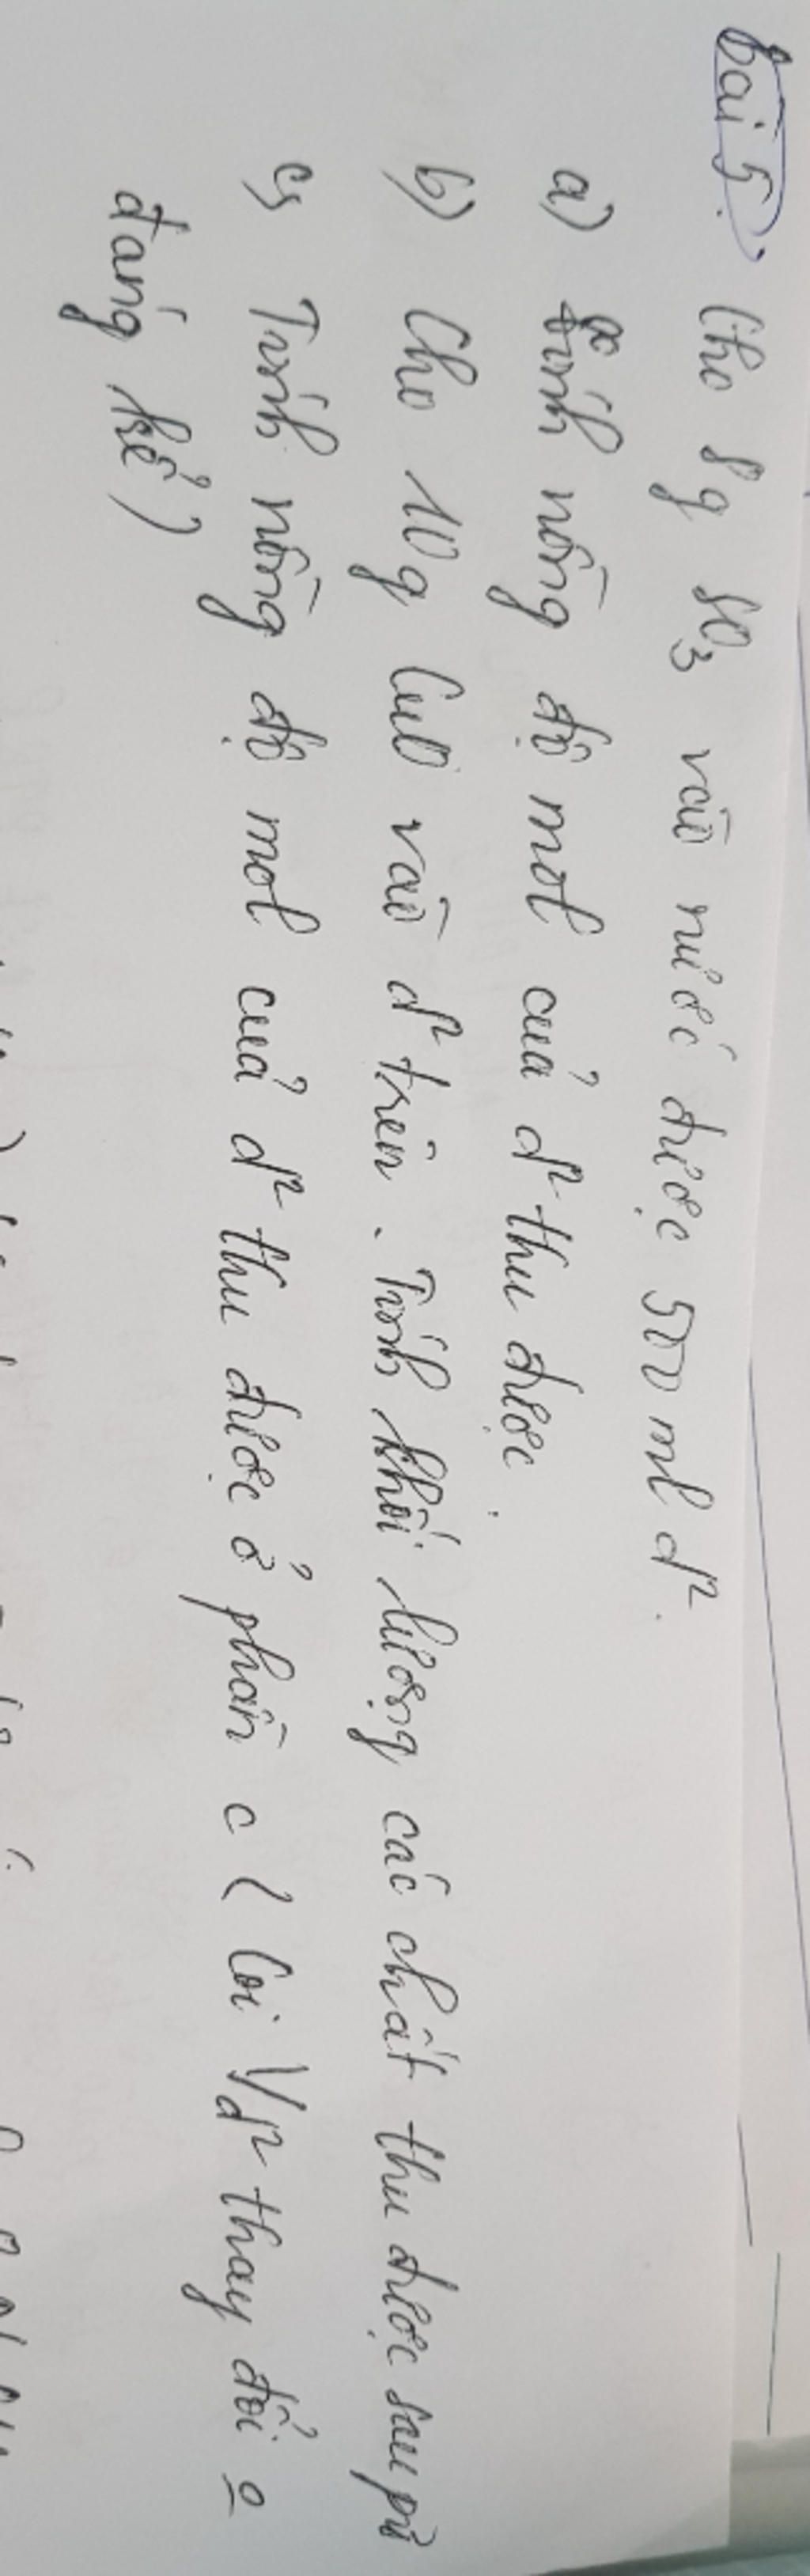 Bài 5: Cho 8g SO3 vào nước được 500 ml d².
a) Tính nồng độ mol của d² thu được.
b) Cho 10g CuO vào d² trên. Tính khối lượng các chất thu được sau pứ
c) Tính nồng độ mol của d² thu được ở phần c (Coi Vd² thay đổi o
đáng kể)